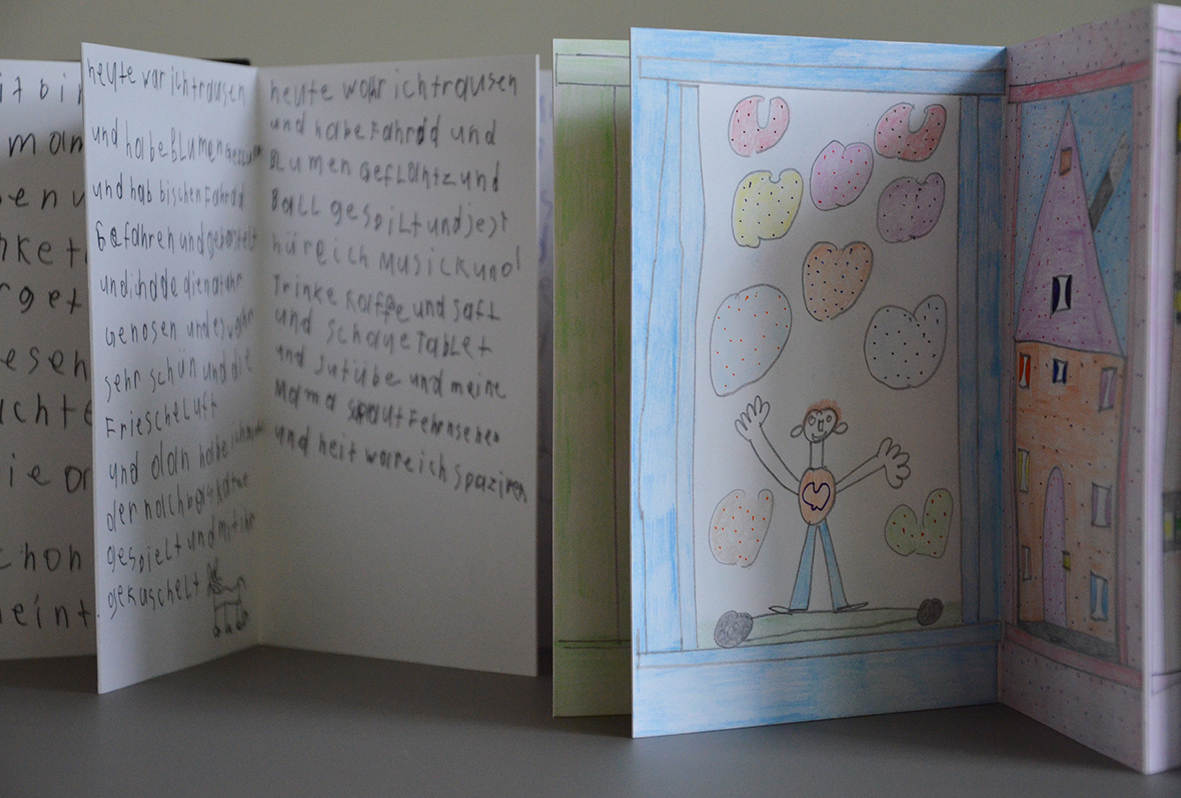 it bin
man
ben
nket
rget
eseh
chte
ie or
chon
eint
heute war ich trausen
und habe BLumen
und hab bischen Fahrrad
Gefahren und gebastelt
und ich habe die natuhr
Genosen und es wahr
sehr schün und die
FriescheLuft
und dan habe ich
der nachbars katze
gespielt und mit ihr
gekuschelt
heute wahr ich trausen
und habe Fahrad und
BLumen GefLantz und
BaLL gespiLt und jezt
hüre ich Musick und
Trinke Kaffee und Saft
und schaue TabLet
und Jutübe und meine
Mama schaut Fehrnsehen
und heit ware ich spaziren